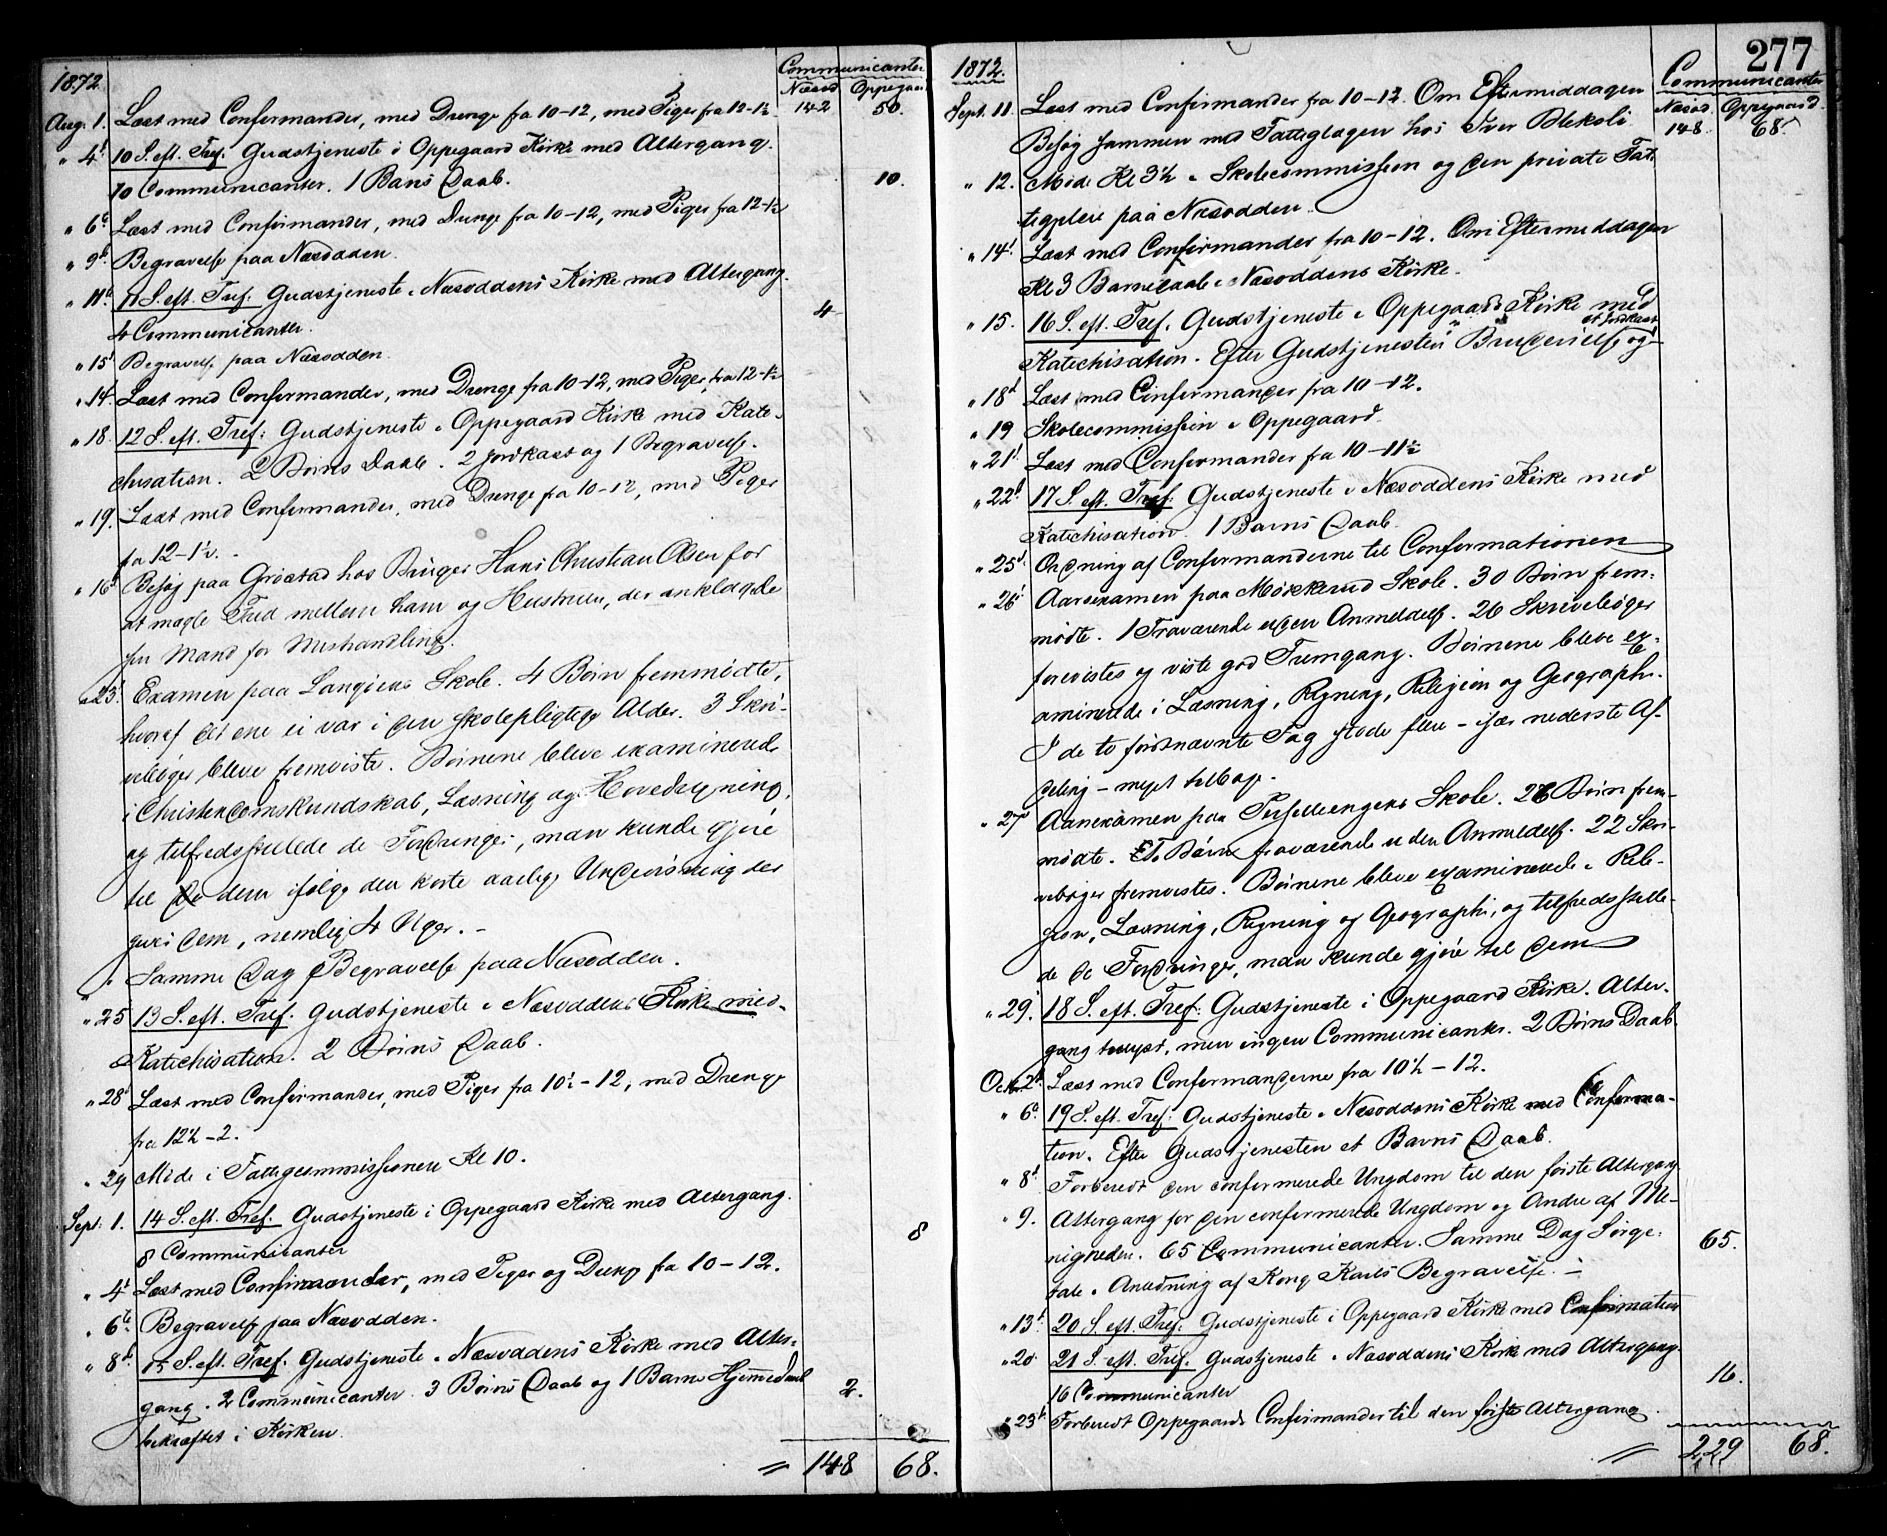 1872
Communicanter
Næsod. Oppegaard
142 50.
Aug. 1. Læst med Confirmander, med Drenge fra 10-12, med Piger fra 12-1½
" 4d 10 S. eft. Tref. Gudstjeneste i Oppegaard Kirke med Altergang.
10 Communicanter. 1 Barns Daab. 10.
" 6d Læst med Confirmander, med Drenge fra 10-12, med Piger fra 12-1½
" 9d Begravelse paa Næsodden.
" 11d 11 S. eft. Tref: Gudstjeneste i Næsoddens Kirke med Altergang.
4 Communicanter. 4
" 15d Begravelse paa Næsodden.
" 14. Læst med Confirmander, med Drenge fra 10-12, med Piger fra 12-1½
" 18. 12 S. eft. Tref: Gudstjeneste i Oppegaard Kirke med Kate-
chisation. 2 Børns Daab. 2 Jordkast og 1 Begravelse.
" 19. Læst med Confirmander, med Drenge fra 10-12, med Piger
fra 12-1½.
" 16d Besøg paa Grøstad hos Bruger Hans Christian Olsen for
at mægle Fred mellem ham og Hustruen, der anklagede
sin Mand for Mishandling.
" 23d Examen paa Langøens Skole. 4 Børn fremmødte,
hvoraf det ene ei var i den skolepligtige Alder. 3 Skri-
vebøger bleve fremviste. Børnene bleve examinerede
i Christendomskundskab, Læsning og Hovedregning,
og tilfredsstillede de Fordringer, man kunde gjøre
til dem ifølge den korte aarlige Undervisning der
gives dem, nemlig 4 Uger. -
" " Samme Dag Begravelse paa Næsodden.
" 25 13 S. eft. Tref. Gudstjeneste i Næsoddens Kirke med
Katechisation. 2 Børns Daab.
" 28d Læst med Confirmander, med Piger fra 10½-12, med Drenge
fra 12½-2.
" 29 Møde i Fattigcommissionen Kl 10.
Sept: 1. 14 S. eft. Tref. Gudstjeneste i Oppegaard Kirke med Altergang.
8 Communicanter 8
" 4d Læst med Confirmander, med Piger og Drenge fra 10-12.
" 6te Begravelse paa Næsodden.
" 8d 15 S. eft. Tref. Gudstjeneste i Næsoddens Kirke med Alter-
gang. 2 Communicanter. 3 Børns Daab og 1 Barns Hjemmedaab 2.
bekræftet i Kirken.
= 148 68.
277
1872.
Communicanter
Næsod. Oppegaard.
148. 68.
Sept. 11. Læst med Confirmander fra 10-12. Om Eftermiddagen
Besøg sammen med Fattiglægen hos Iver Bleksli
" 12. Møde Kl 3½ i Skolecommission og den private Fat-
tigpleie paa Næsodden.
" 14d Læst med Confirmander fra 10-12. Om Eftermiddagen
Kl 3 Barnedaab i Næsoddens Kirke.
" 15. 16 S. eft. Tref. Gudstjeneste i Oppegaards Kirke med
Katechisation. Efter Gudstjenesten Brudevielse og et Jordkast
" 18d Læst med Confirmander fra 10-12.
" 19 Skolecommission i Oppegaard.
" 21d Læst med Confirmander fra 10-11½
" 22d 17 S. eft. Tref. Gudstjeneste i Næsoddens Kirke med
Katechisation. 1 Barns Daab.
" 25d Ordning af Confirmanderne til Confirmationen
" 26d Aarsexamen paa Møkkerud Skole. 30 Børn frem-
mødte. 1 Fraværende uden Anmeldelse. 26 Skrivebøger
forevistes og viste god Fremgang. Børnene bleve ex-
aminerede i Læsning, Regning, Religion og Geographi.
I de to førstnævnte Fag stode flere - især nederste Af-
deling - meget tilbage.
" 27 Aarsexamen paa Skole. 26 Børn frem-
mødte. To Børn fraværende uden Anmeldelse. 22 Skri-
vebøger fremvistes. Børnene bleve examinerede i Reli-
gion, Læsning, Regning og Geographi, og tilfredsstille-
de de Fordringer, man kunde gjøre til dem
" 29. 18 S. eft. Tref: Gudstjeneste i Oppegaard Kirke. Alter-
gang tillyst, men ingen Communicanter. 2 Børns Daab.
Octr. 2d Læst med Confirmanderne fra 10½-12.
" 6d 19 S. eft. Tref: Gudstjeneste i Næsoddens Kirke med Confirma-
tion. Efter Gudstjenesten et Barns Daab.
" 8d Forberedt den confirmerede Ungdom til den første Altergang
" 9. Altergang for den confirmerede Ungdom og Andre af Me-
nigheden. 65 Communicanter. Samme Dag Sørge- 65.
tale i Anledning af Kong Karls Begravelse. -
" 13d 20 S. eft. Tref: Gudstjeneste i Oppegaard Kirke med Confirmation
" 20 21 S. eft. Tref. Gudstjeneste i Næsoddens Kirke med Altergang.
16 Communicanter 16.
" 23d Forberedt Oppegaards Confirmander til den første Altergang.
= 229 68.